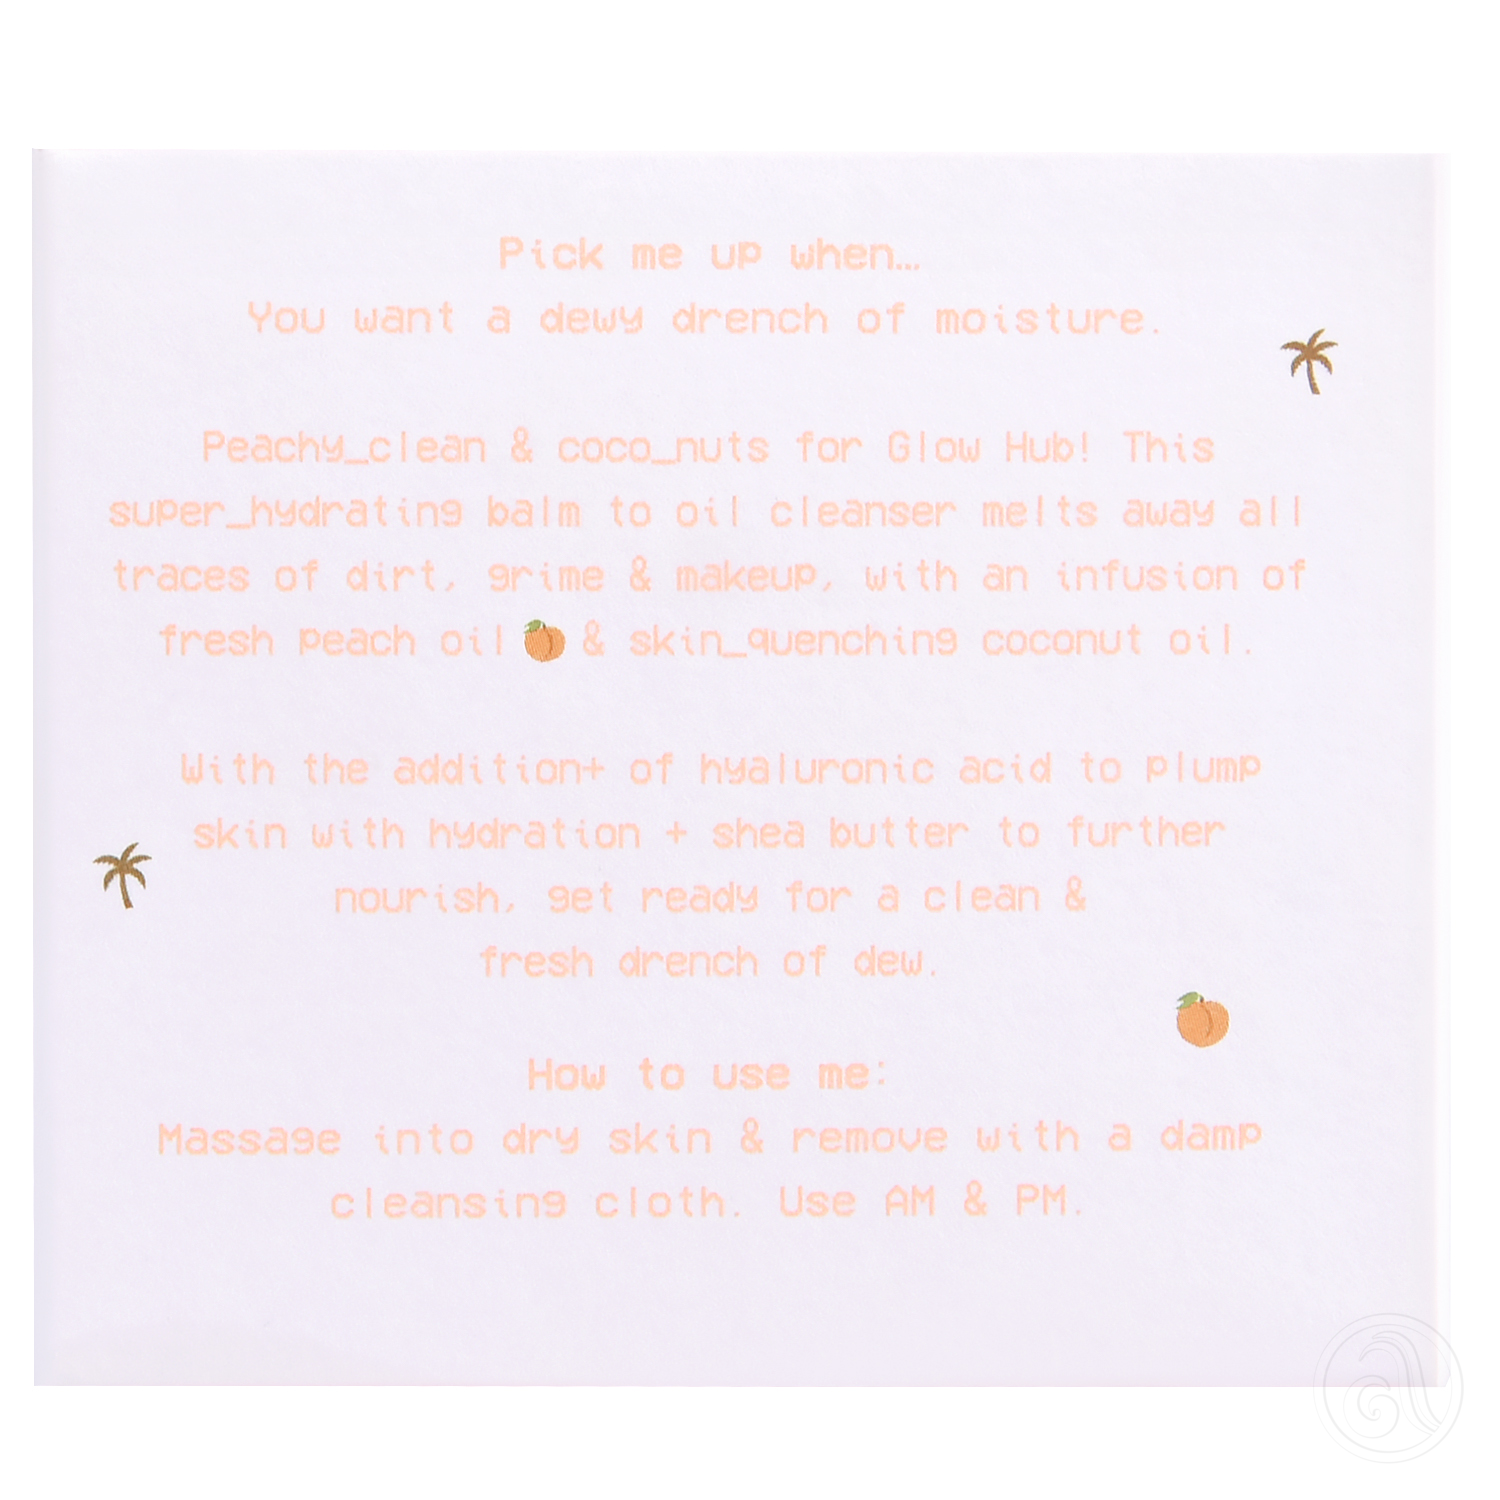 Pick me up when…
You want a dewy drench of moisture.
Peachy_clean & coco_nuts for Glow Hub! This
super_hydrating balm to oil cleanser melts away all
traces of dirt, grime & makeup, with an infusion of
fresh peach oil & skin_quenching coconut oil.
With the addition+ of hyaluronic acid to plump
skin with hydration + shea butter to further
nourish, get ready for a clean &
fresh drench of dew.
How to use me:
Massage into dry skin & remove with a damp
cleansing cloth. Use AM & PM.